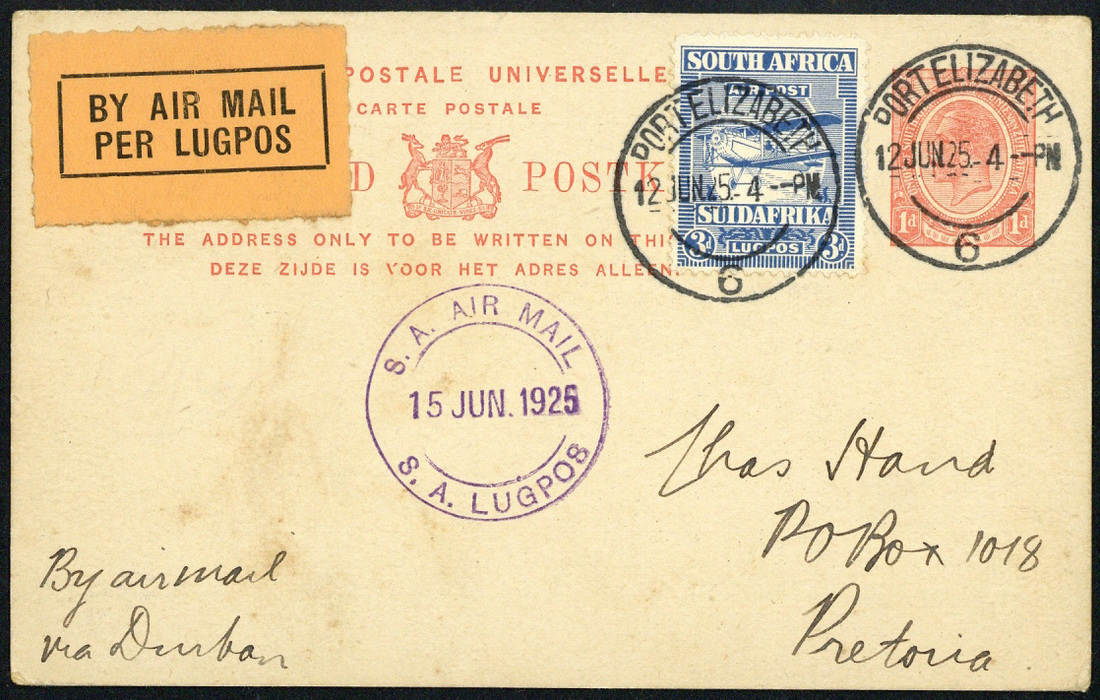 BY AIR MAIL
PER LUGPOS
POSTALE UNIVERSELLE
CARTE POSTALE
D POSTK
THE ADDRESS ONLY TO BE WRITTEN ON THI
DEZE ZIJDE IS VOOR HET ADRES ALLEEN.
SOUTH AFRICA
AIR POST
SUIDAFRIKA
3d LUGPOS 3d
PORT ELIZABETH
12 JUN 25 - 4 -- PM
6
1d 1d
PORT ELIZABETH
12 JUN 25 - 4 -- PM
6
S. A. AIR MAIL
15 JUN. 1925
S. A. LUGPOS
Chas Hand
PO Box 1018
Pretoria
By airmail
via Durban